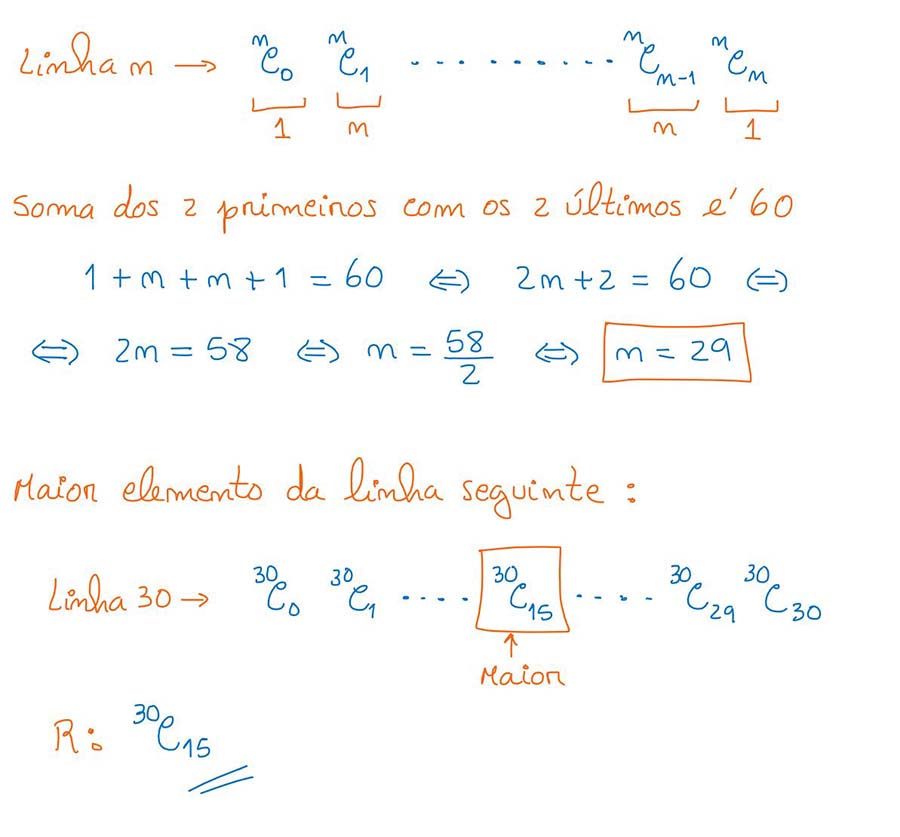 Linha n → ⁿC₀ ⁿC₁ .......... ⁿCₙ₋₁ ⁿCₙ
1 n n 1
Soma dos 2 primeiros com os 2 últimos é 60
1 + n + n + 1 = 60 ⇔ 2n + 2 = 60 ⇔
⇔ 2n = 58 ⇔ n = 58/2 ⇔ n = 29
Maior elemento da linha seguinte :
Linha 30 → ³⁰C₀ ³⁰C₁ .... ³⁰C₁₅ .... ³⁰C₂₉ ³⁰C₃₀
↑
Maior
R: ³⁰C₁₅